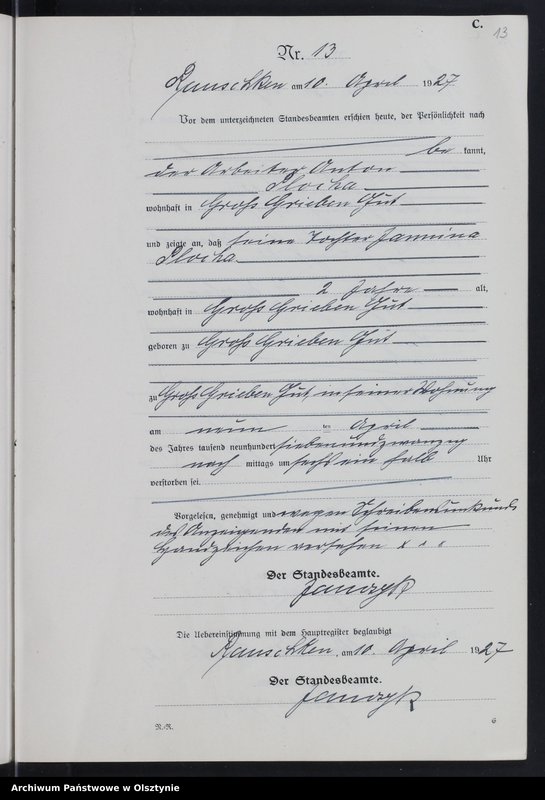 C.
13
Nr. 13
Rauschken am 10. April 1927
Vor dem unterzeichneten Standesbeamten erschien heute, der Persönlichkeit nach
be kannt,
der Arbeiter Anton
Plocha
wohnhaft in Groß Grieben Gut
und zeigte an, daß seine Tochter Jannina
Plocha
2 Jahre alt,
wohnhaft in Groß Grieben Gut
geboren zu Groß Grieben Gut
zu Groß Grieben Gut, in seiner Wohnung
am neun ten April
des Jahres tausend neunhundert siebenundzwanzig
nach mittags um sechs ein halb Uhr
verstorben sei.
Vorgelesen, genehmigt und wegen Schreibensunkunde
des Anzeigenden mit seinem
Handzeichen versehen x x x
Der Standesbeamte.
Die Uebereinstimmung mit dem Hauptregister beglaubigt
Rauschken, am 10. April 1927
Der Standesbeamte.
N.-R.
6
Archiwum Państwowe w Olsztynie